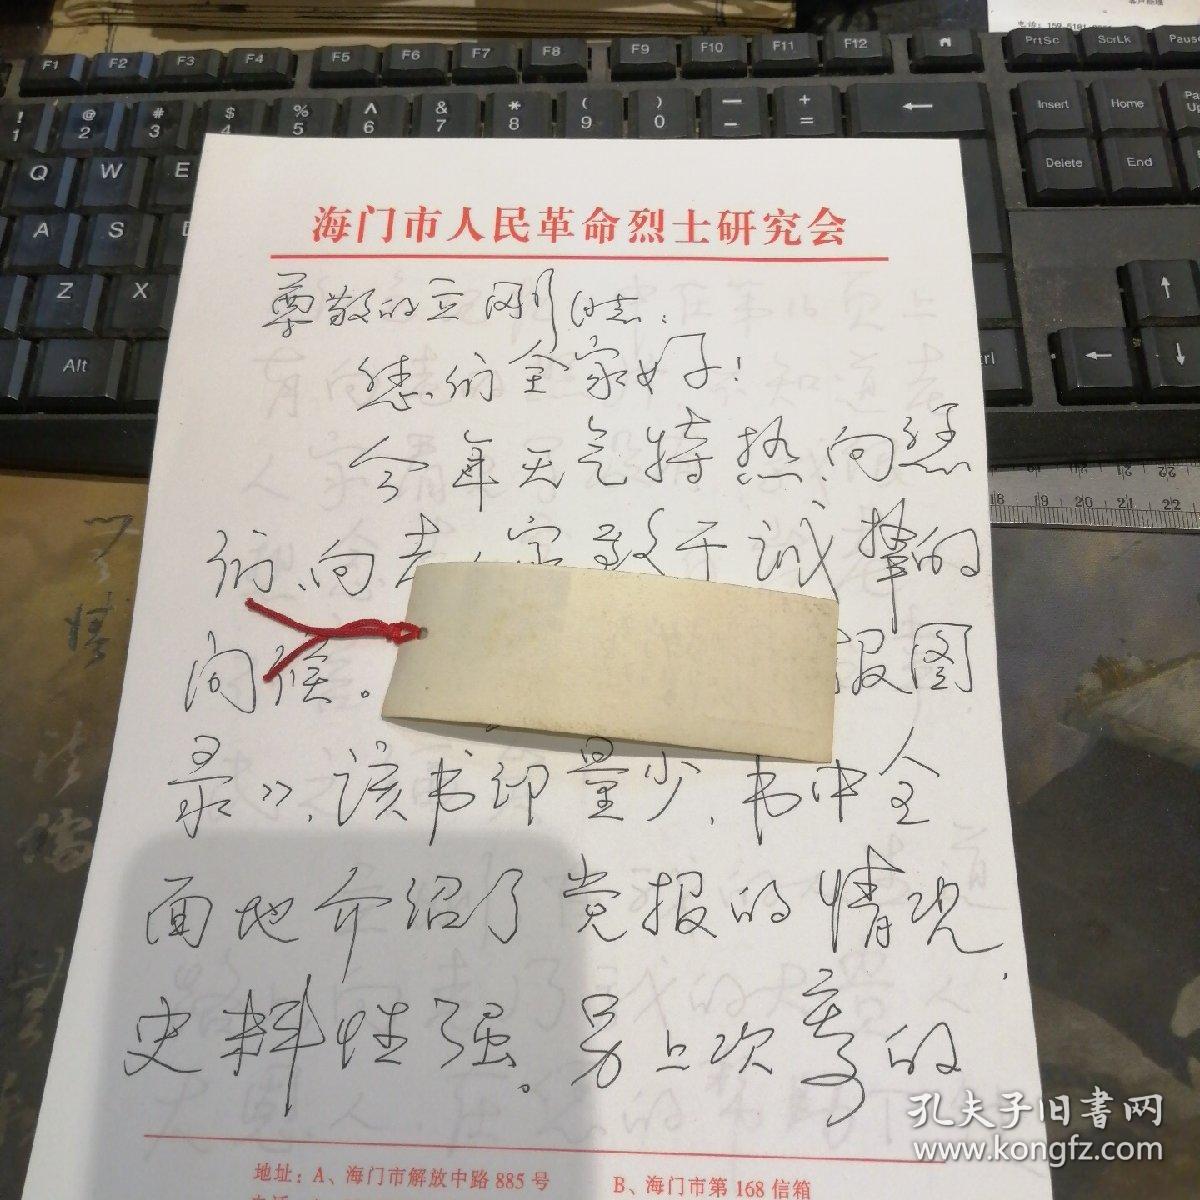 海门市人民革命烈士研究会
尊敬的立刚同志:
您们全家好!
今年天气特热,向您
们、向老人家致于诚挚的
问候。报图
录》,该书印量少,书中全
面地介绍了党报的情况,
史料性强。另上次寄的
地址:A、海门市解放中路885号
B、海门市第168信箱
孔夫子旧书网
www.kongfz.com
F1 F2 F3 F4 F5 F6 F7 F8 F9 F10 F11 F12 PrtSc ScrLk Pause
! 1 @ 2 # 3 $ 4 % 5 ^ 6 & 7 * 8 ( 9 ) 0 — - + = Insert Home
Q W E Delete End
A S
Z X
Alt
18 19 20 21 22